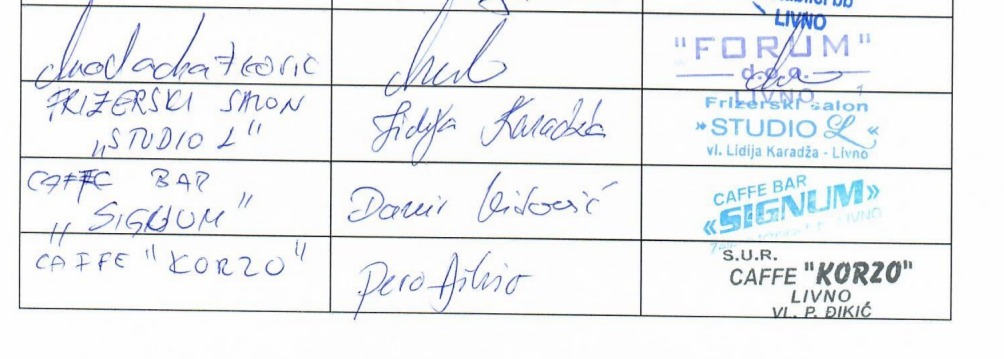 LIVNO
"FORUM"
d.o.o.
LIVNO
FRIZERSKI SALON
„STUDIO L"
Lidija Karadža
Frizerski salon
»STUDIO L«
vl. Lidija Karadža - Livno
CAFFE BAR
„SIGNUM"
Damir
CAFFE BAR
«SIGNUM»
LIVNO
CAFFE "KORZO"
Pero
S.U.R.
CAFFE "KORZO"
LIVNO
VL. P. ĐIKIĆ